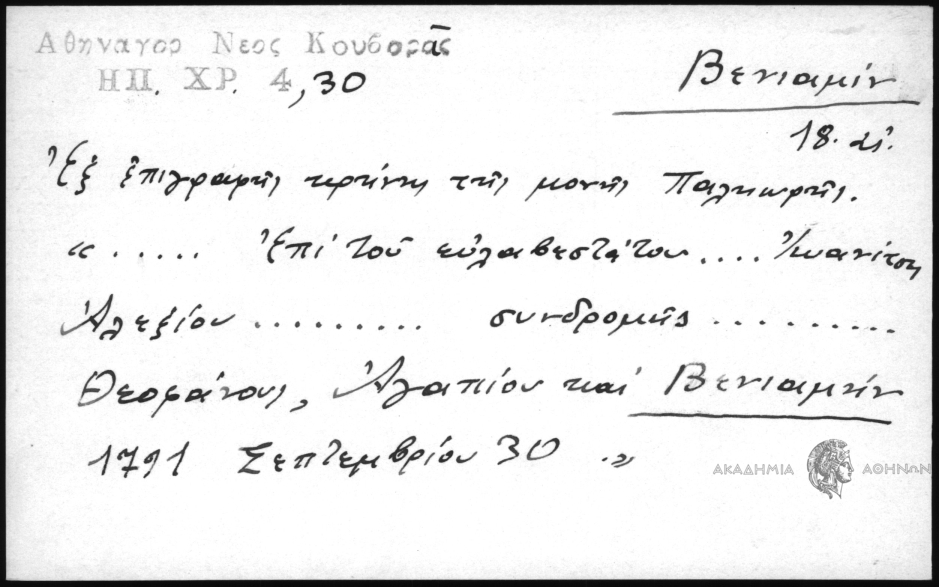 Αθηναγορ Νεος Κουβαρᾶς
ΗΠ. ΧΡ. 4, 30
Βενιαμίν
18. αἰ.
Ἐξ ἐπιγραφῆς κρήνης τῆς μονῆς Παλιωρῆς.
« ..... Ἐπὶ τοῦ εὐλαβεστάτου .... Ἰωανίτση
Ἀλεξίου ......... συνδρομῆς .........
Θεοφάνους, Ἀγαπίου καὶ Βενιαμὴν
1791 Σεπτεμβρίου 30 .»
ΑΚΑΔΗΜΙΑ ΑΘΗΝΩΝ